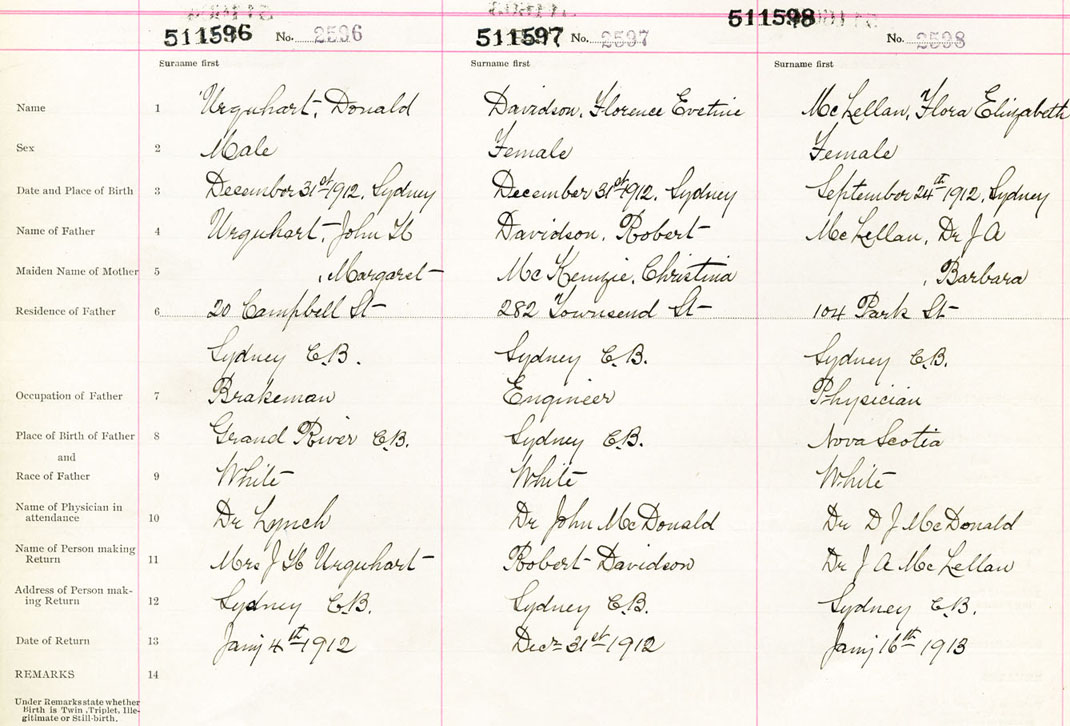 511596 No. 2596 511597 No. 2597 511598 No. 2598
Surname first Surname first Surname first
Name 1 Urquhart, Donald Davidson, Florence Evetine McLellan, Flora Elizabeth
Sex 2 Male Female Female
Date and Place of Birth 3 December 31st 1912, Sydney December 31st 1912, Sydney September 24th 1912, Sydney
Name of Father 4 Urquhart, John H Davidson, Robert McLellan, Dr J A
Maiden Name of Mother 5 , Margaret McKenzie, Christina , Barbara
Residence of Father 6 20 Campbell St 282 Townsend St 104 Park St
Sydney C.B. Sydney C.B. Sydney C.B.
Occupation of Father 7 Brakeman Engineer Physician
Place of Birth of Father 8 Grand River C.B. Sydney C.B. Nova Scotia
and
Race of Father 9 White White White
Name of Physician in
attendance 10 Dr Lynch Dr John McDonald Dr D J McDonald
Name of Person making
Return 11 Mrs J H Urquhart Robert Davidson Dr J A McLellan
Address of Person mak-
ing Return 12 Sydney C.B. Sydney C.B. Sydney C.B.
Date of Return 13 Jany 4th 1912 Decr 31st 1912 Jany 16th 1913
REMARKS 14
Under Remarks state whether
Birth is Twin, Triplet, Ille-
gitimate or Still-birth.